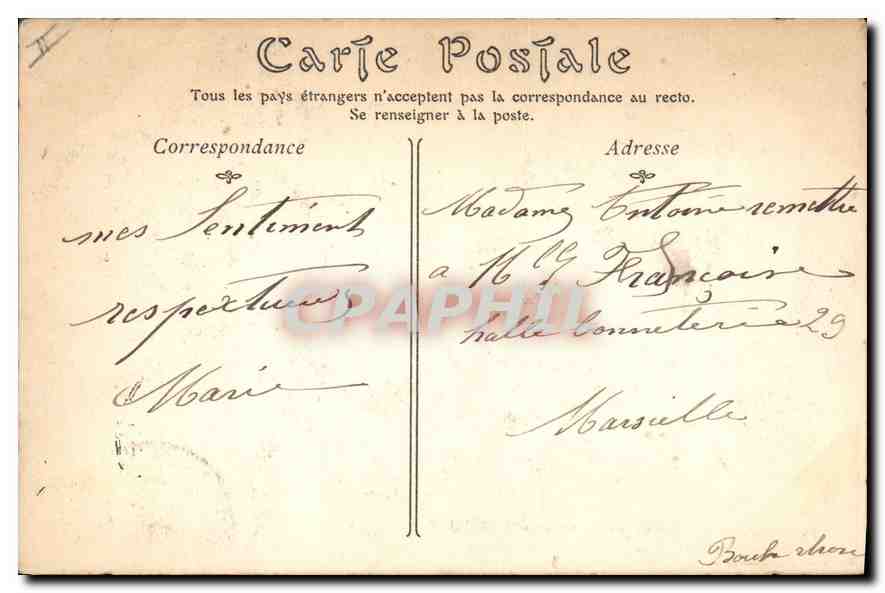 II
Carte Postale
Tous les pays étrangers n'acceptent pas la correspondance au recto.
Se renseigner à la poste.
Correspondance
mes Sentiment
respextueux
Marie
Adresse
Madame Antoine remettre
a Mlle Françoise
halle bonneterie 29
Marsielle
Bouche rhone
CPAPHIL